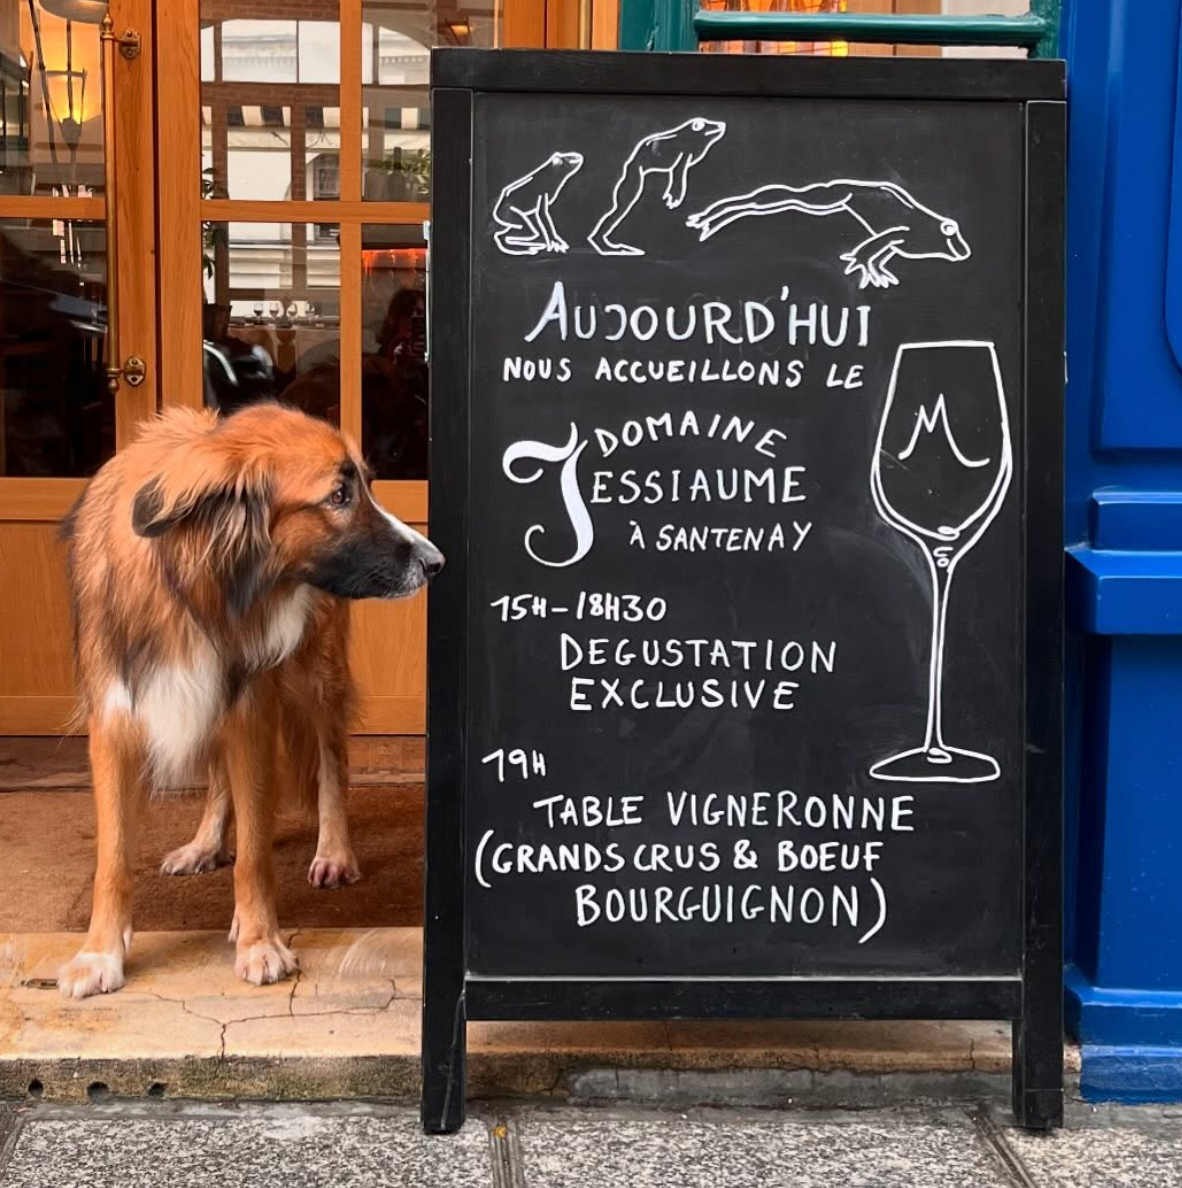 AUJOURD'HUI
NOUS ACCUEILLONS LE
DOMAINE
JESSIAUME
À SANTENAY
M
15H-18H30
DEGUSTATION
EXCLUSIVE
19H
TABLE VIGNERONNE
(GRANDS CRUS & BOEUF
BOURGUIGNON)